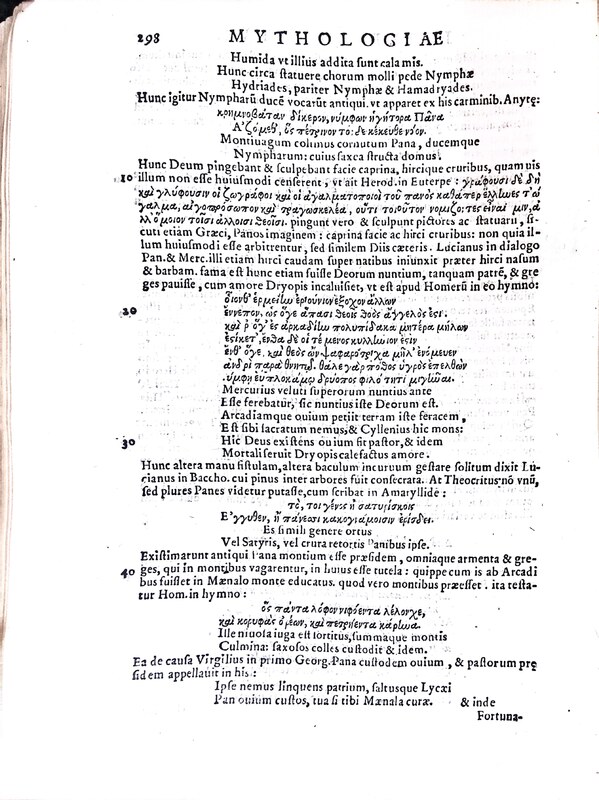 298 MYTHOLOGIAE
Humida vt illius addita sunt calamis.
Hunc circa statuere chorum molli pede Nymphæ
Hydriades, pariter Nymphæ & Hamadryades.
Hunc igitur Nympharũ ducẽ vocarũt antiqui. vt apparet ex his carminib. Anytę:
κρημνοβάταν δίκερον, νύμφων ἡγήτορα Πᾶνα
Ἁζόμεθ', ὃς πέτρινον
Montiuagum colimus cornutum Pana, ducemque
Nympharum: cuius saxea structa domus.
Hunc Deum pingebant & sculpebant facie caprina, hircique cruribus, quamuis
10 illum non esse huiusmodi censerent, vt ait Herod. in Euterpe: γράφουσι δὲ δὴ
καὶ γλύφουσιν οἱ ζωγράφοι καὶ οἱ ἀγαλματοποιοὶ τοῦ πανὸς καθάπερ ἕλληνες τ'ἄ
γαλμα, αἰγοπρόσωπον καὶ τραγοσκελέα, οὔτι τοιοῦτον νομίζοντες εἶναί μιν, ἀ
λλ' ὅμοιον τοῖσι ἄλλοισι θεοῖσι. pingunt vero & sculpunt pictores ac statuarii, si-
cuti etiam Græci, Panos imaginem: caprina facie ac hirci cruribus: non quia il-
lum huiusmodi esse arbitrentur, sed similem Diis cæteris. Lucianus in dialogo
Pan. & Merc. illi etiam hirci caudam super natibus iniunxit præter hirci nasum
& barbam. fama est hunc etiam fuisse Deorum nuntium, tanquam patrẽ, & gre
ges pauisse, cum amore Dryopis incaluisset, vt est apud Homerũ in eo hymno:
ἐριούνιον ἔξοχον ἄλλων
20 ἔννεπον, ὡς ὅγε ἅπασι θεοῖς θοὸς ἄγγελός ἐστι.
καὶ ῥ' ὅγ' ἐς ἀρκαδίην πολυπίδακα μητέρα μήλων
ἐξίκετ', ἔνθα δέ οἱ τέμενος κυλλήνιον ἐστὶν
ἔνθ' ὅγε, καὶ θεὸς ὢν ψαφαρότριχα μῆλ' ἐνόμευεν
ἀνδρὶ παρὰ θνητῷ. θάλε γὰρ πόθος ὑγρὸς ἐπελθὼν
νύμφῃ ἐυπλοκάμῳ δρύοπος φιλότητι μιγῆναι.
Mercurius veluti superorum nuntius ante
Esse ferebatur, sic nuntius iste Deorum est.
Arcadiamque ouium petiit terram iste feracem,
Est sibi sacratum nemus, & Cyllenius hic mons:
30 Hic Deus existens ouium fit pastor, & idem
Mortali seruit Dryopis calefactus amore.
Hunc altera manu fistulam, altera baculum incuruum gestare solitum dixit Lu-
cianus in Baccho. cui pinus inter arbores fuit consecrata. At Theocritus nõ vnũ,
sed plures Panes videtur putasse, cum scribat in Amaryllide:
τὸ, τοι γένος ἢ σατυρίσκοις
Ἐγγύθεν, ἢ πάνεσσι κακοκνάμοισιν ἐρίσδει.
Es simili genere ortus
Vel Satyris, vel crura retortis Panibus ipse.
Existimarunt antiqui Pana montium esse præsidem, omniaque armenta & gre-
40 ges, qui in montibus vagarentur, in huius esse tutela: quippe cum is ab Arcadi
bus fuisset in Mænalo monte educatus. quod vero montibus præesset. ita testa-
tur Hom. in hymno:
ὃς πάντα λόφον νιφόεντα λέλογχε,
καὶ κορυφὰς ὀρέων, καὶ πετρήεντα κάρηνα.
Ille niuosa iuga est sortitus, summaque montis
Culmina: saxosos colles custodit & idem.
Ea de causa Virgilius in primo Georg. Pana custodem ouium, & pastorum prę
sidem appellauit in his:
Ipse nemus linquens patrium, saltusque Lycæi
Pan ouium custos, tua si tibi Mænala curæ. & inde
Fortuna-